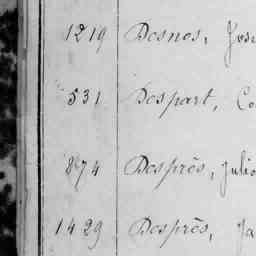 1219 Desnos,
531 Despart, Co
874 Desprēs, Julio
1429 Desprēs, Ja